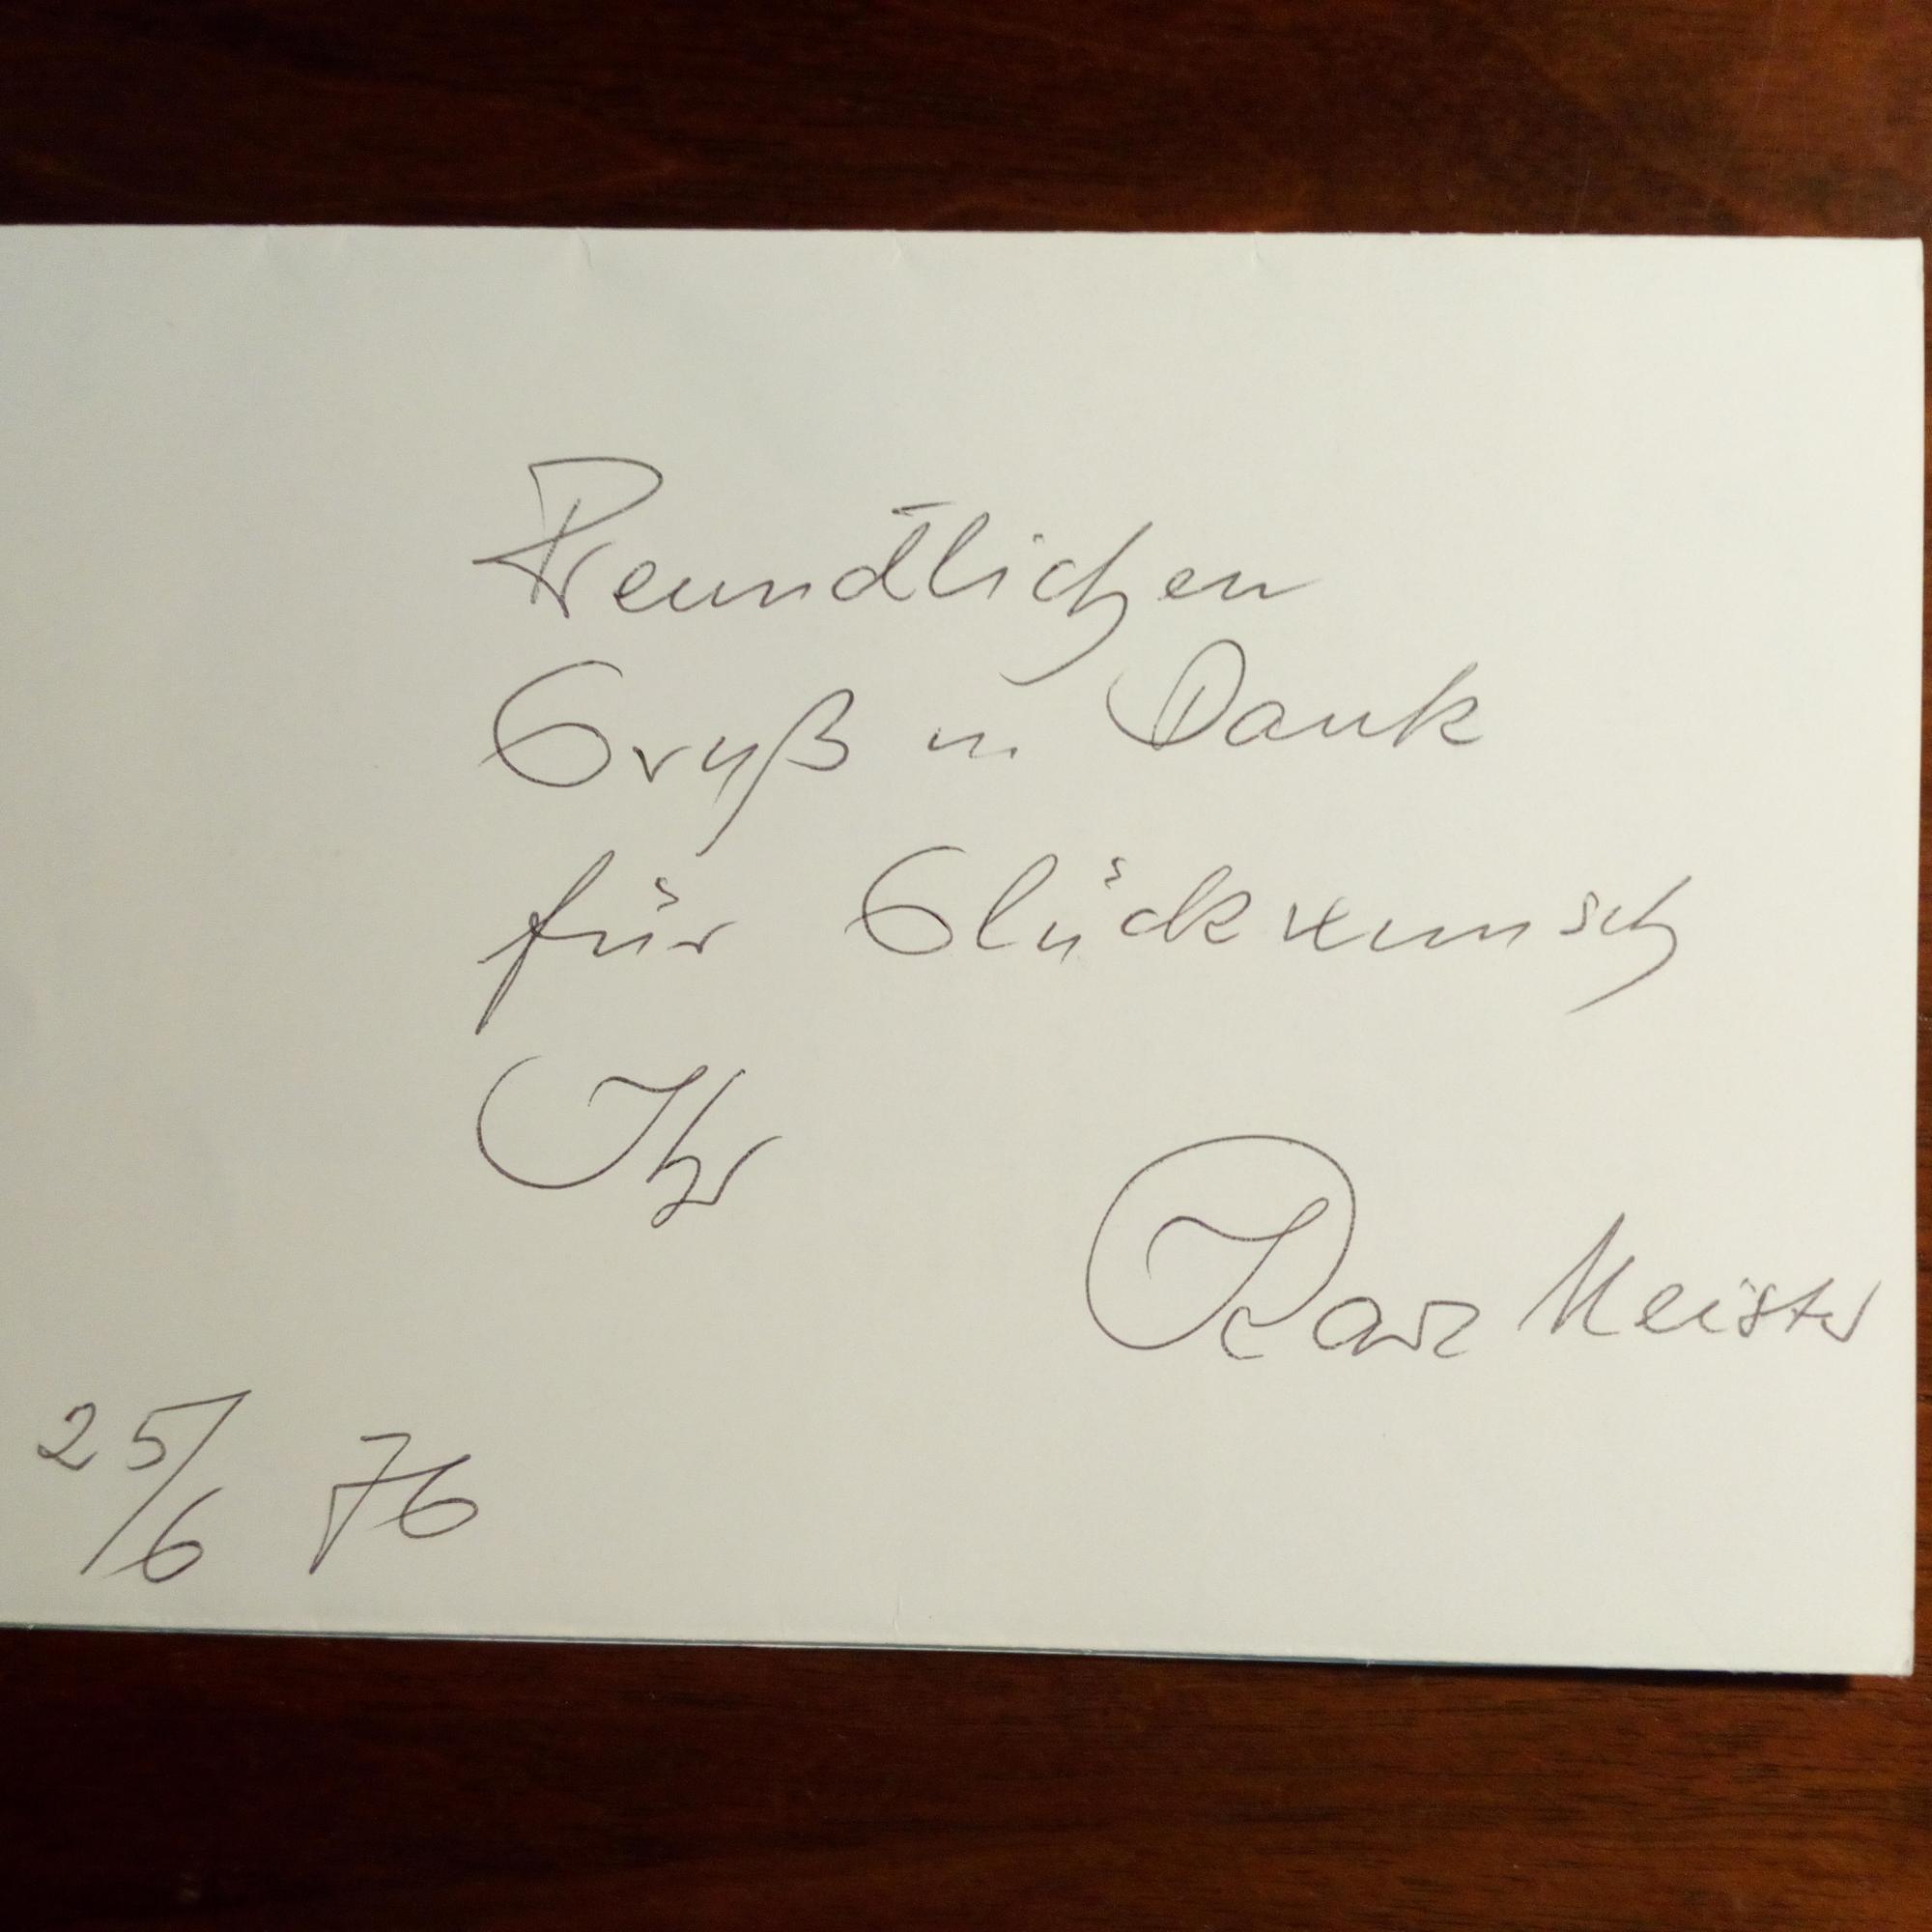 Freundlichen
Gruß u. Dank
für Glückwunsch
Ihr
Karl Meister
25/6 76